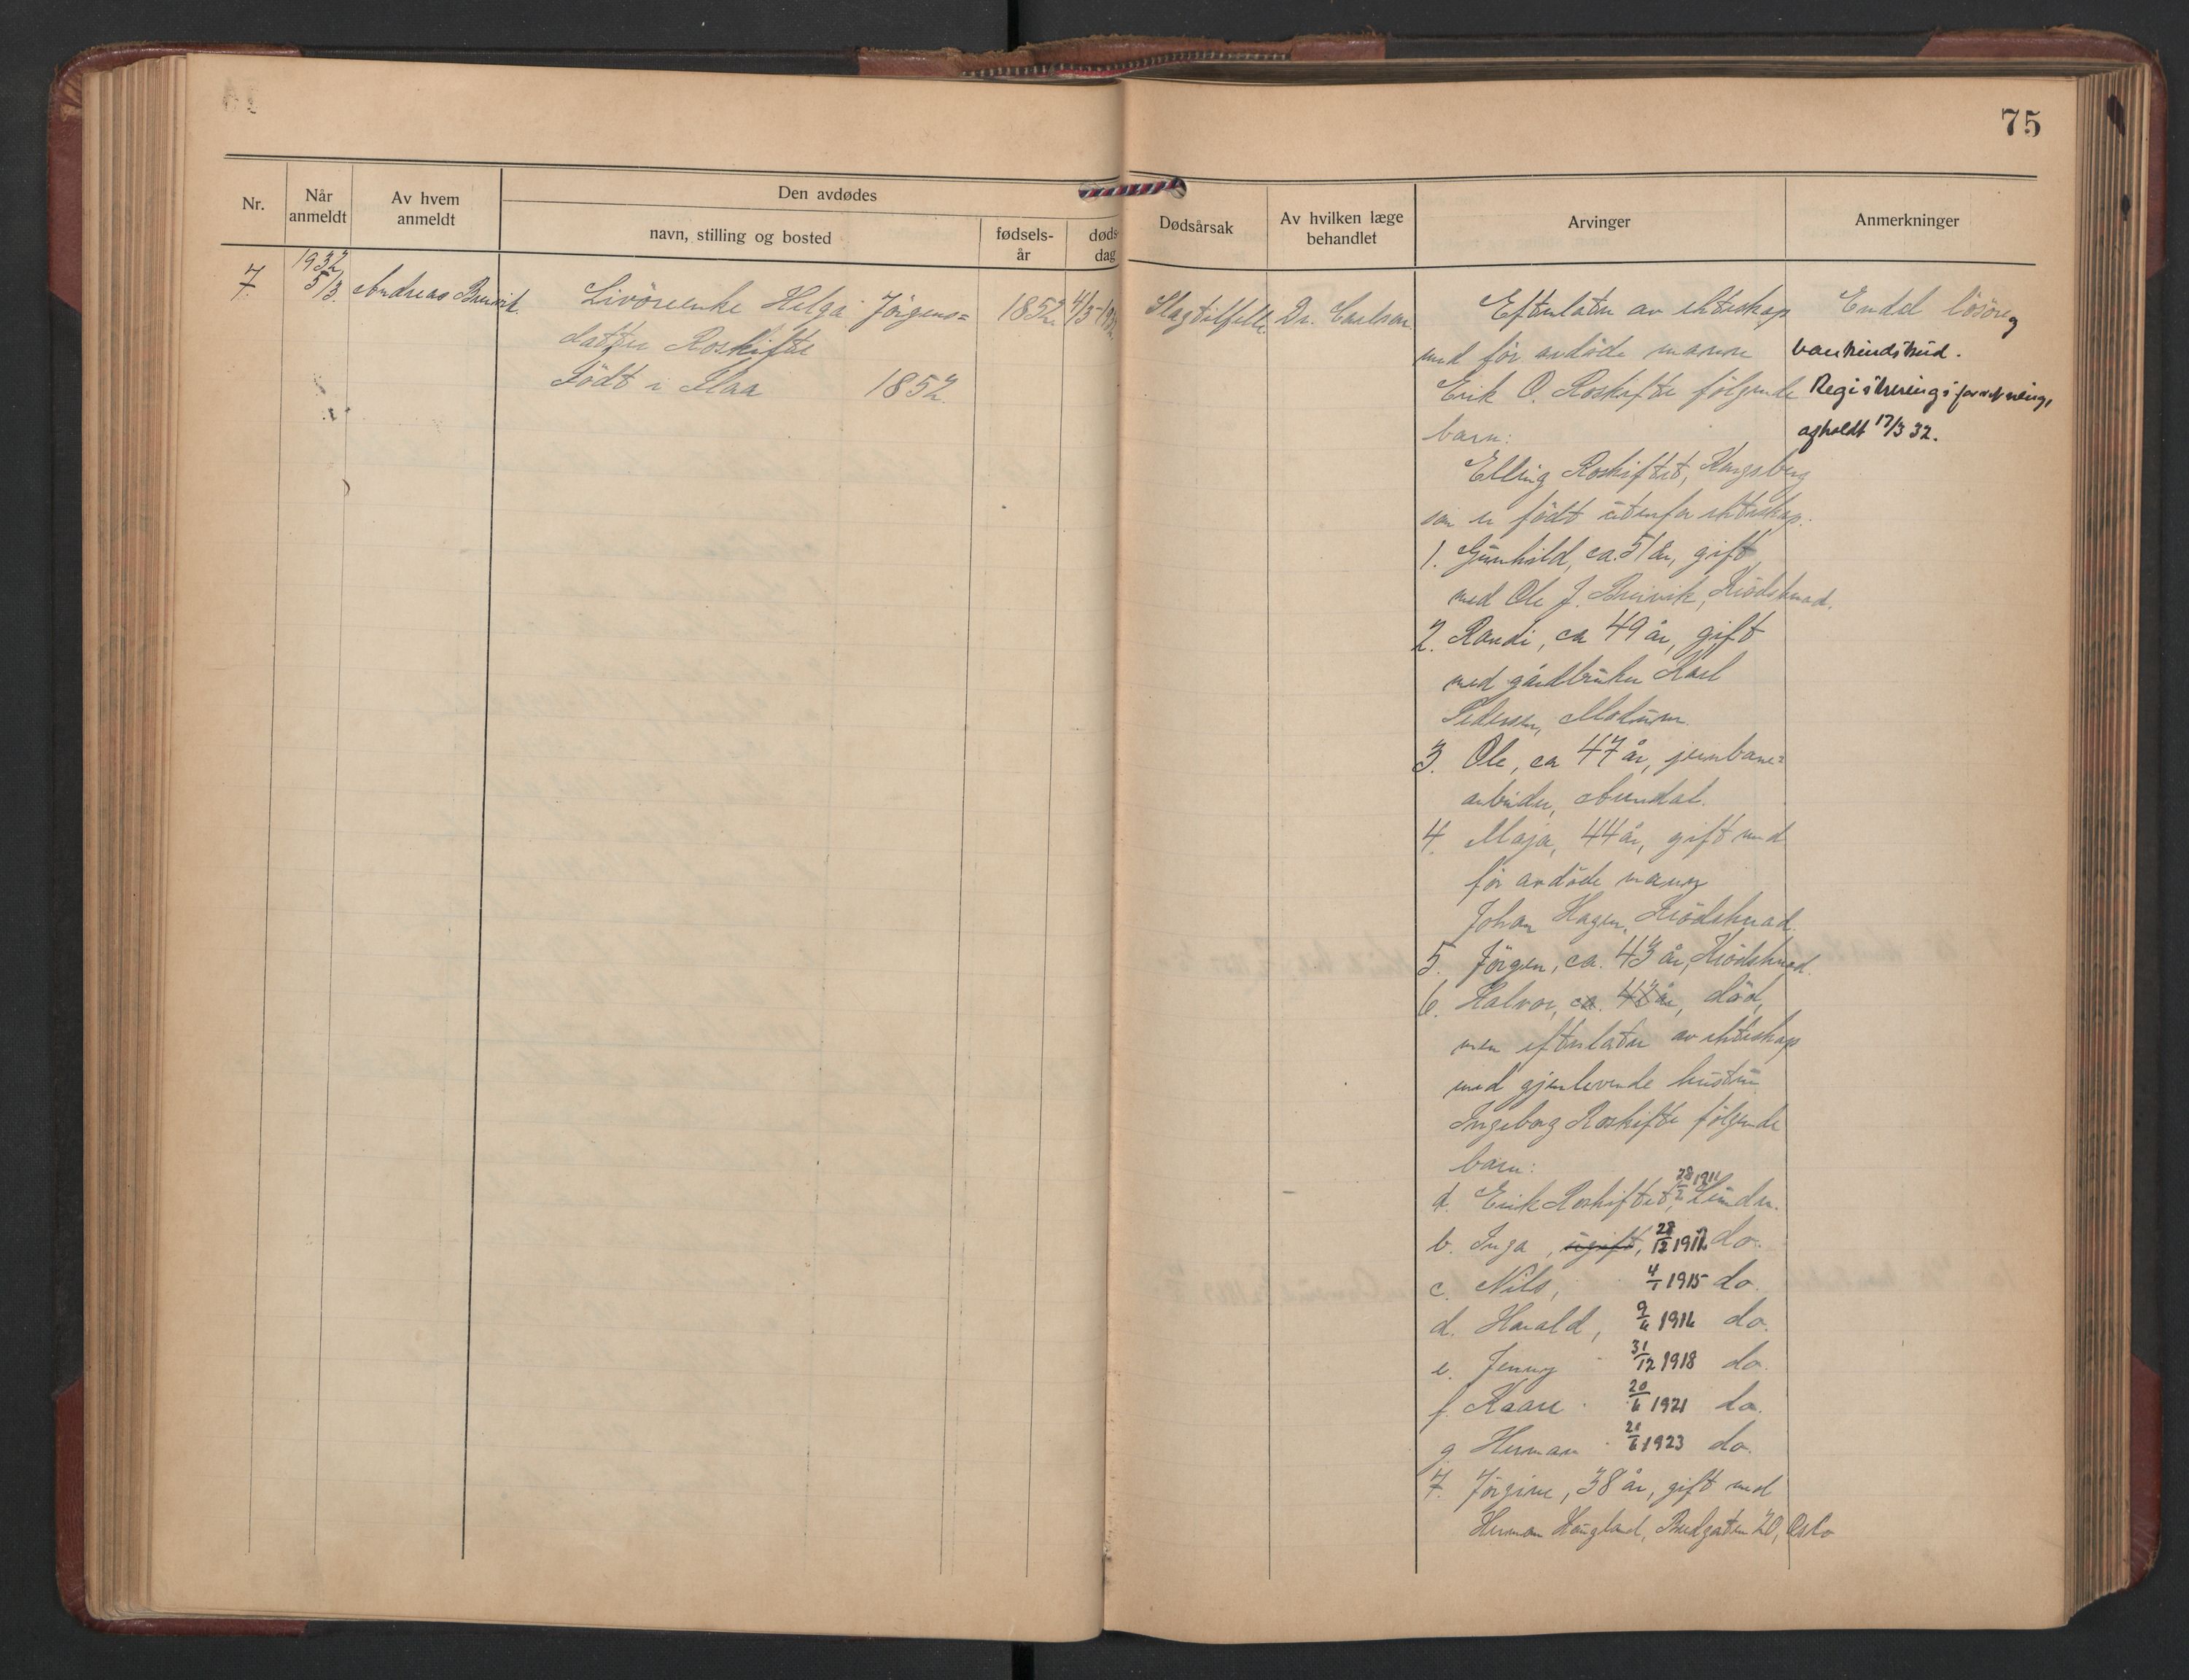 75
Nr.
Når anmeldt
Av hvem anmeldt
Den avdødes
navn, stilling og bosted
fødsels-år
døds-dag
Dødsårsak
Av hvilken læge behandlet
Arvinger
Anmerkninger
7.
1932
5/3.
Andreas Breivik.
Livöreenke Helga Jörgens=
datter Roskifte
Födt i Flaa 1852.
1852
4/3-1932
Slagtilfelle.
Dr. Carlson.
Efterlater av ekteskap
med för avdöde mann
Erik O. Roskifte fölgende
barn:
Elling Roskiftet, Kongsberg
som er födt utenfor ekteskap.
1. Gunhild, ca. 51 år, gift
med Ole J. Breivik, Krödsherad.
2. Randi, ca 49 år, gift
med gårdbruker Karl
Pedersen, Modum.
3. Ole, ca 47 år, jernbane=
arbeider, Arendal.
4. Maja, 44 år, gift med
för avdöde mann
Johan Hagen, Krödsherad.
5. Jörgen, ca. 43 år, Krödsherad.
6. Halvor, ca. år, död,
men efterlater av ekteskap
med gjenlevende hustru
Ingeborg Roskifte fölgende
barn:
a. Erik Roskiftet, 28/2 1911 Lunder.
b. Inga, ugift, 28/12 1912 do.
c. Nils, 4/1 1915 do.
d. Harald, 9/6 1916 do.
e. Jenny 31/12 1918 do.
f. Kaare 20/6 1921 do.
g. Herman 21/6 1923 do.
7. Jörgine, 38 år, gift med
Herman Haugland, 20, Oslo
Endel lösöre og
bankindskud.
Registreringsforretning,
avholdt 17/3 32.